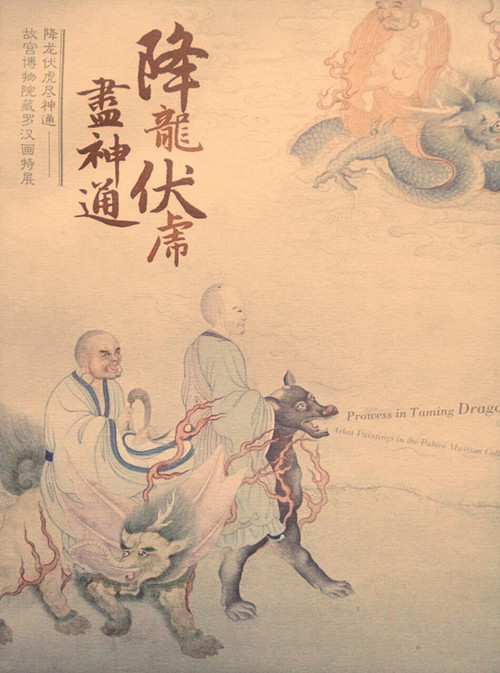 降龍伏虎
盡神通
降龙伏虎尽神通——
故宫博物院藏罗汉画特展
Prowess in Taming
Arhat Paintings in the Palace Museum